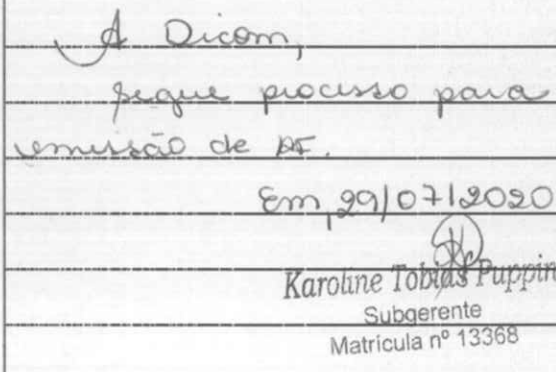 A Dicom,
segue processo para
emissão de AF.
Em, 29/07/2020
Karoline Tobias Puppin
Subgerente
Matricula nº 13368